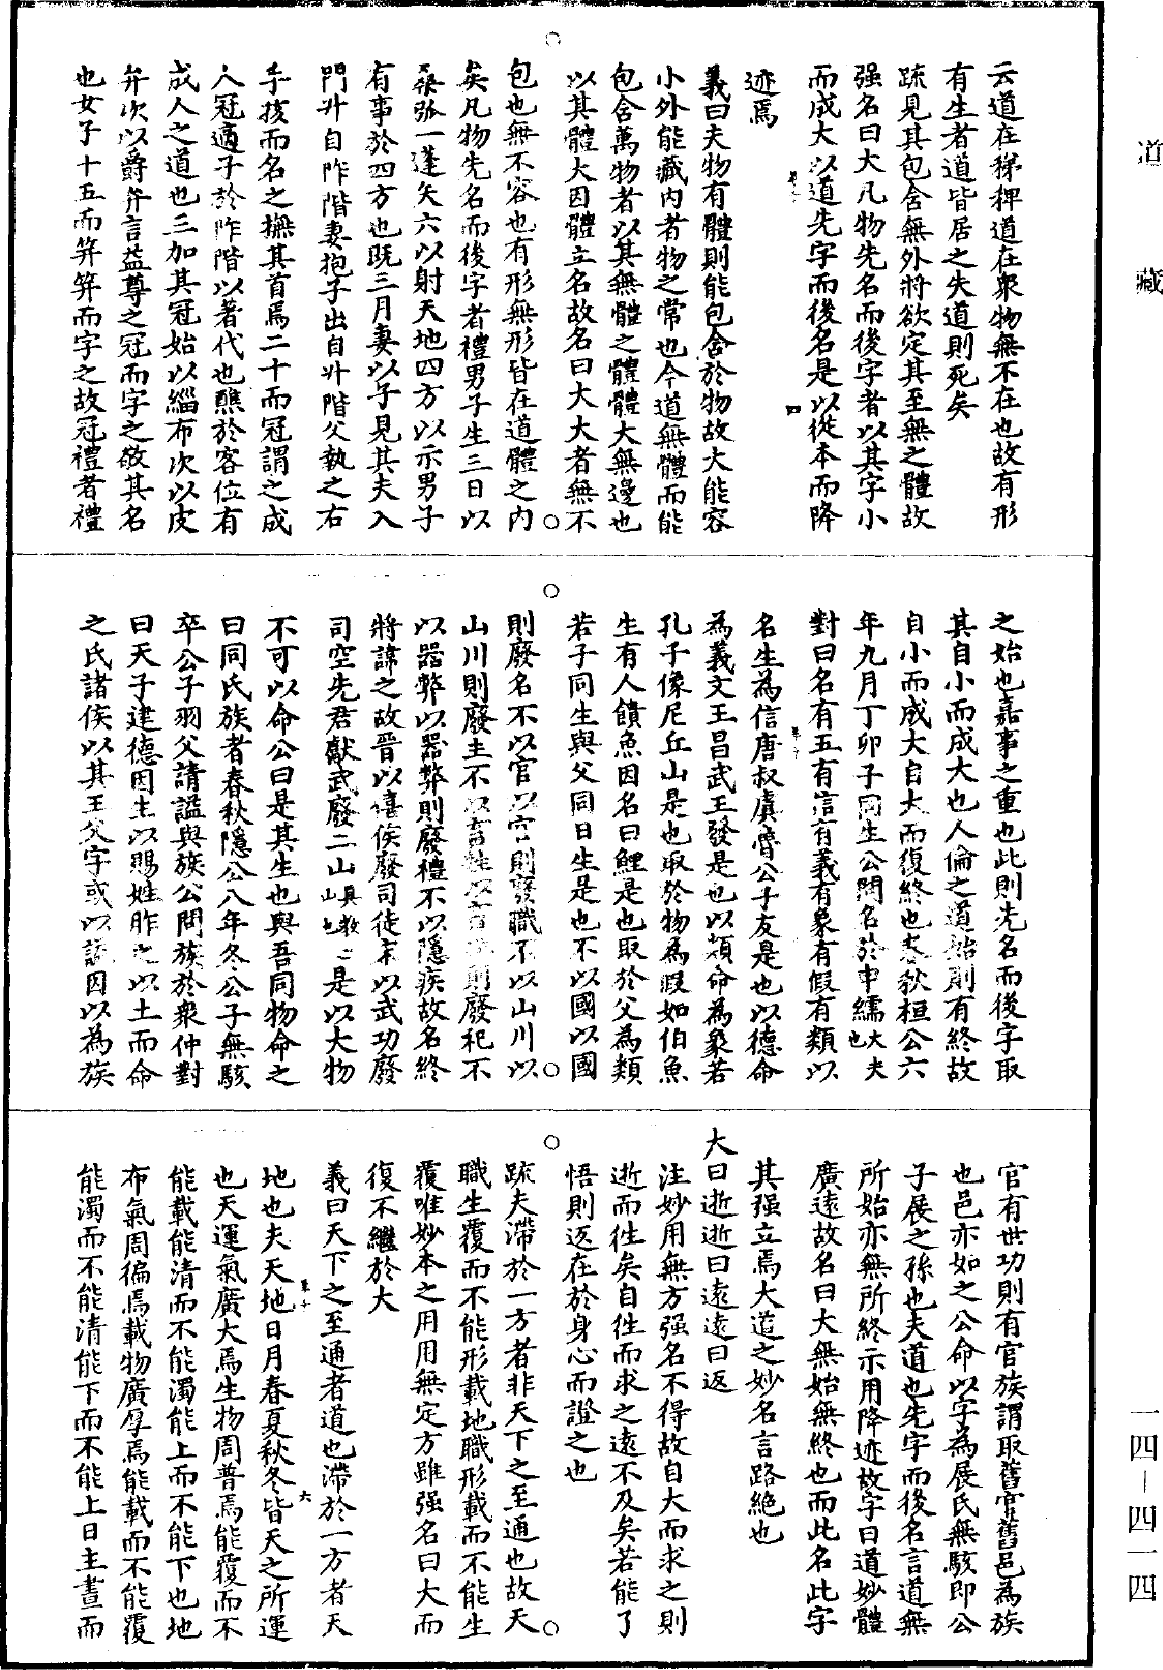 道藏
云道在稊稗道在衆物無不在也故有形
有生者道皆居之失道則死矣
疏見其包含無外將欲定其至無之體故
强名曰大凡物先名而後字者以其字小
而成大以道先字而後名是以從本而降
迹焉
義曰夫物有體則能包含於物故大能容
小外能藏内者物之常也今道無體而能
包含萬物者以其無體之體體大無邊也
以其體大因體立名故名曰大大者無不
包也無不容也有形無形皆在道體之内
矣凡物先名而後字者禮男子生三日以
桑弧一蓬矢六以射天地四方以示男子
有事於四方也既三月妻以子見其夫入
門升自阼階妻抱子出自升階父執之右
手孩而名之撫其首焉二十而冠謂之成
人冠適子於阼階以著代也醮於客位有
成人之道也三加其冠始以緇布次以皮
弁次以爵弁言益尊之冠而字之敬其名
也女子十五而笄笄而字之故冠禮者禮
之始也嘉事之重也此則先名而後字取
其自小而成大也人倫之道始則有終故
自小而成大自大而復終也春秋桓公六
年九月丁卯子同生公問名於申繻大夫也
對曰名有五有信有義有象有假有類以
名生為信唐叔虞魯公子友是也以德命
為義文王昌武王發是也以類命為象若
孔子像尼丘山是也取於物為假如伯魚
生有人饋魚因名曰鯉是也取於父為類
若子同生與父同日生是也不以國以國
則廢名不以官以官則廢職不以山川以
山川則廢主不以畜牲以畜牲則廢祀不
以器幣以器幣則廢禮不以隱疾故名終
將諱之故晉以僖侯廢司徒宋以武功廢
司空先君獻武廢二山具敖二山也是以大物
不可以命公曰是其生也與吾同物命之
曰同氏族者春秋隱公八年冬公子無駭
卒公子羽父請謚與族公問族於衆仲對
曰天子建德因生以賜姓胙之以土而命
之氏諸侯以其王父字或以謚因以為族
官有世功則有官族謂取舊官舊邑為族
也邑亦如之公命以字為展氏無駭即公
子展之孫也夫道也先字而後名言道無
所始亦無所終示用降迹故字曰道妙體
廣遠故名曰大無始無終也而此名此字
其强立焉大道之妙名言路絶也
大曰逝逝曰遠遠曰返
注妙用無方强名不得故自大而求之則
逝而往矣自往而求之遠不及矣若能了
悟則返在於身心而證之也
疏夫滯於一方者非天下之至通也故天
職生覆而不能形載地職形載而不能生
覆唯妙本之用用無定方雖强名曰大而
復不繼於大
義曰天下之至通者道也滯於一方者天
地也夫天地日月春夏秋冬皆天之所運
也天運氣廣大焉生物周普焉能覆而不
能載能清而不能濁能上而不能下也地
布氣周徧焉載物廣厚焉能載而不能覆
能濁而不能清能下而不能上日主晝而
一四—四一四